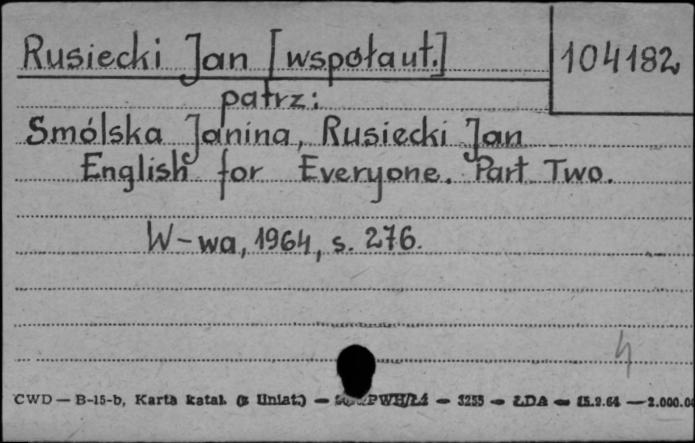 Rusiecki Jan [współaut.] 104182
patrz:
Smólska Janina, Rusiecki Jan
English for Everyone. Part Two.
W-wa, 1964, s. 276.
CWD — B-15-b, Karta katal. (z liniat.) — PWH/Łd — 3255 — ŁDA — 15.2.64 — 2.000.0